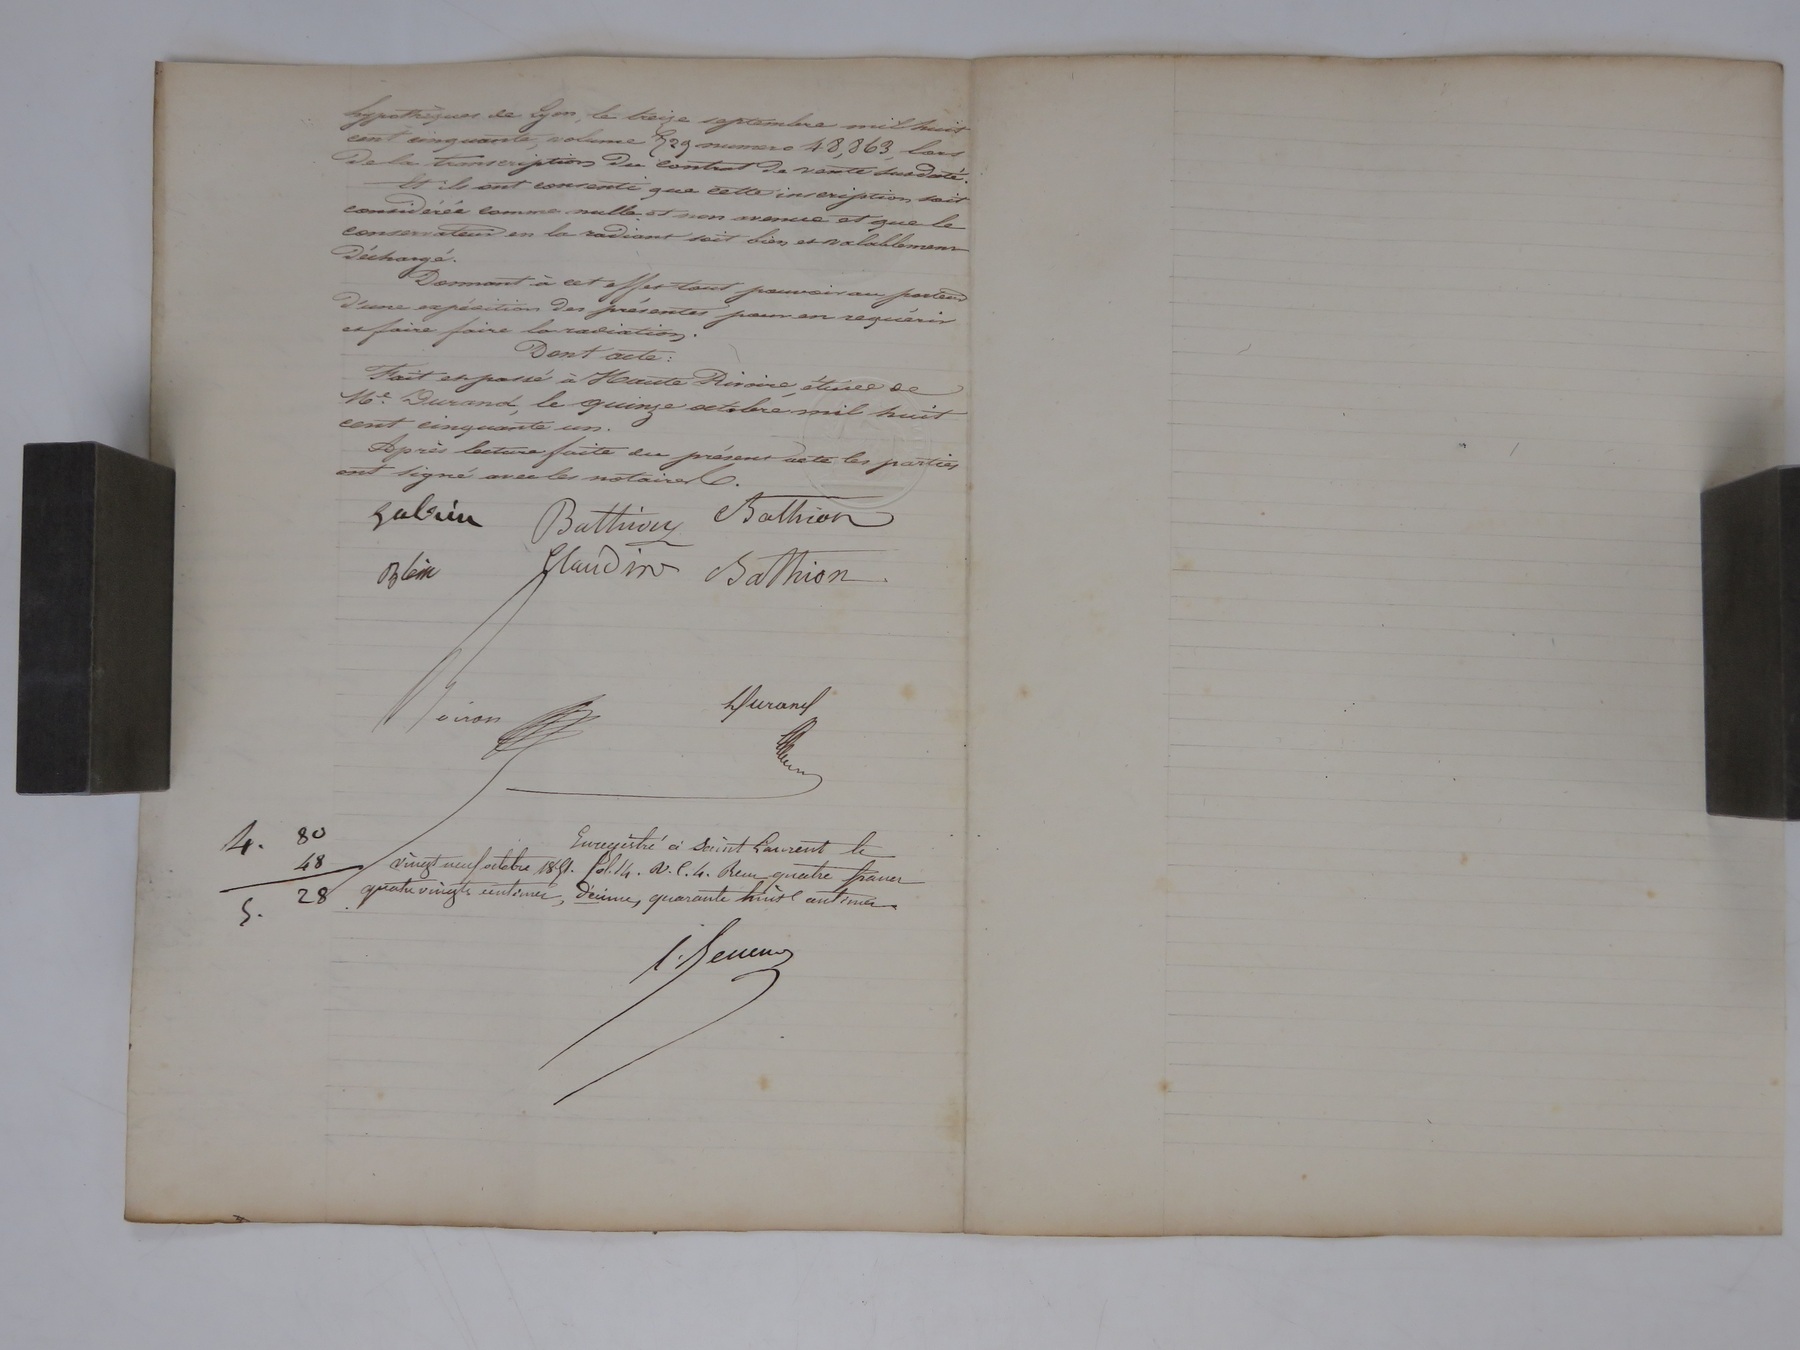 hypothèques de Lyon, le treize septembre mil huit
cent cinquante, volume 529 numero 48,863, lors
de la transcription du contrat de vente susdaté.
Et ils ont consenti que cette inscription soit
considérée comme nulle et non avenue et que le
conservateur en la radiant soit bien et valablement
déchargé.
Donnant à cet effet tout pouvoir au porteur
d'une expédition des présentes pour en requérir
et faire faire la radiation.
Dont acte:
Fait et passé à Haute Rivoire, étude de
Me. Durand, le quinze octobre mil huit
cent cinquante un.
Après lecture faite du présent acte les parties
ont signé avec les notaires.
Bathion Bathion
Blein Claudine Bathion
Durand
4. 80
48
5. 28
Enregistré à Saint Laurent le
vingt neuf octobre 1851. fol. 14. v. c. 4. Reçu quatre francs
quatre vingts centimes, décime, quarante huit centimes.